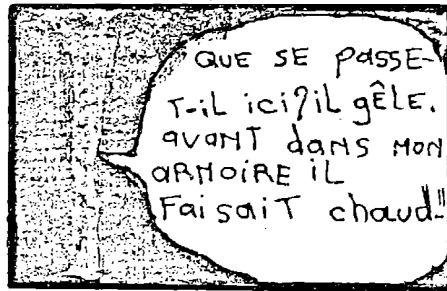 QUE SE PASSE-
T-iL ici? iL gÊLE.
avant dans MON
ARMOIRE iL
Faisait chaud!!